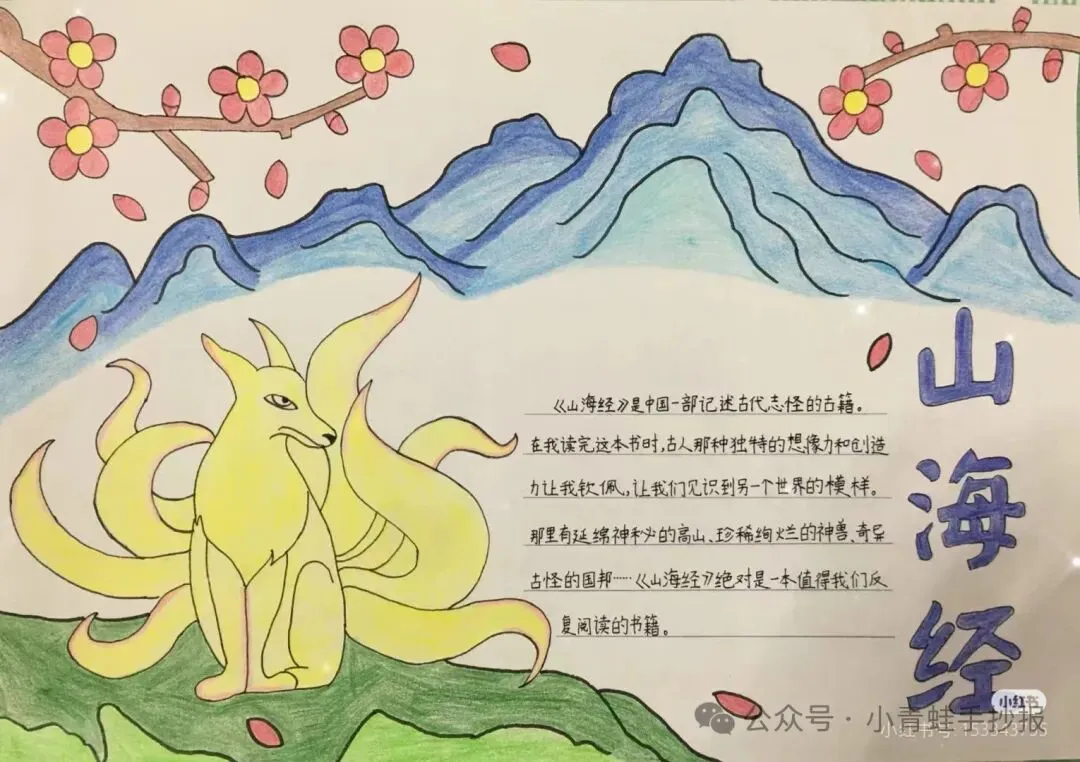 《山海经》是中国一部记述古代志怪的古籍。
在我读完这本书时,古人那种独特的想像力和创造
力让我钦佩,让我们见识到另一个世界的模样。
那里有延绵神秘的高山、珍稀绚烂的神兽、奇异
古怪的国邦……《山海经》绝对是一本值得我们反
复阅读的书籍。
山海经
小红书
公众号·小青蛙手抄报
小红书号: